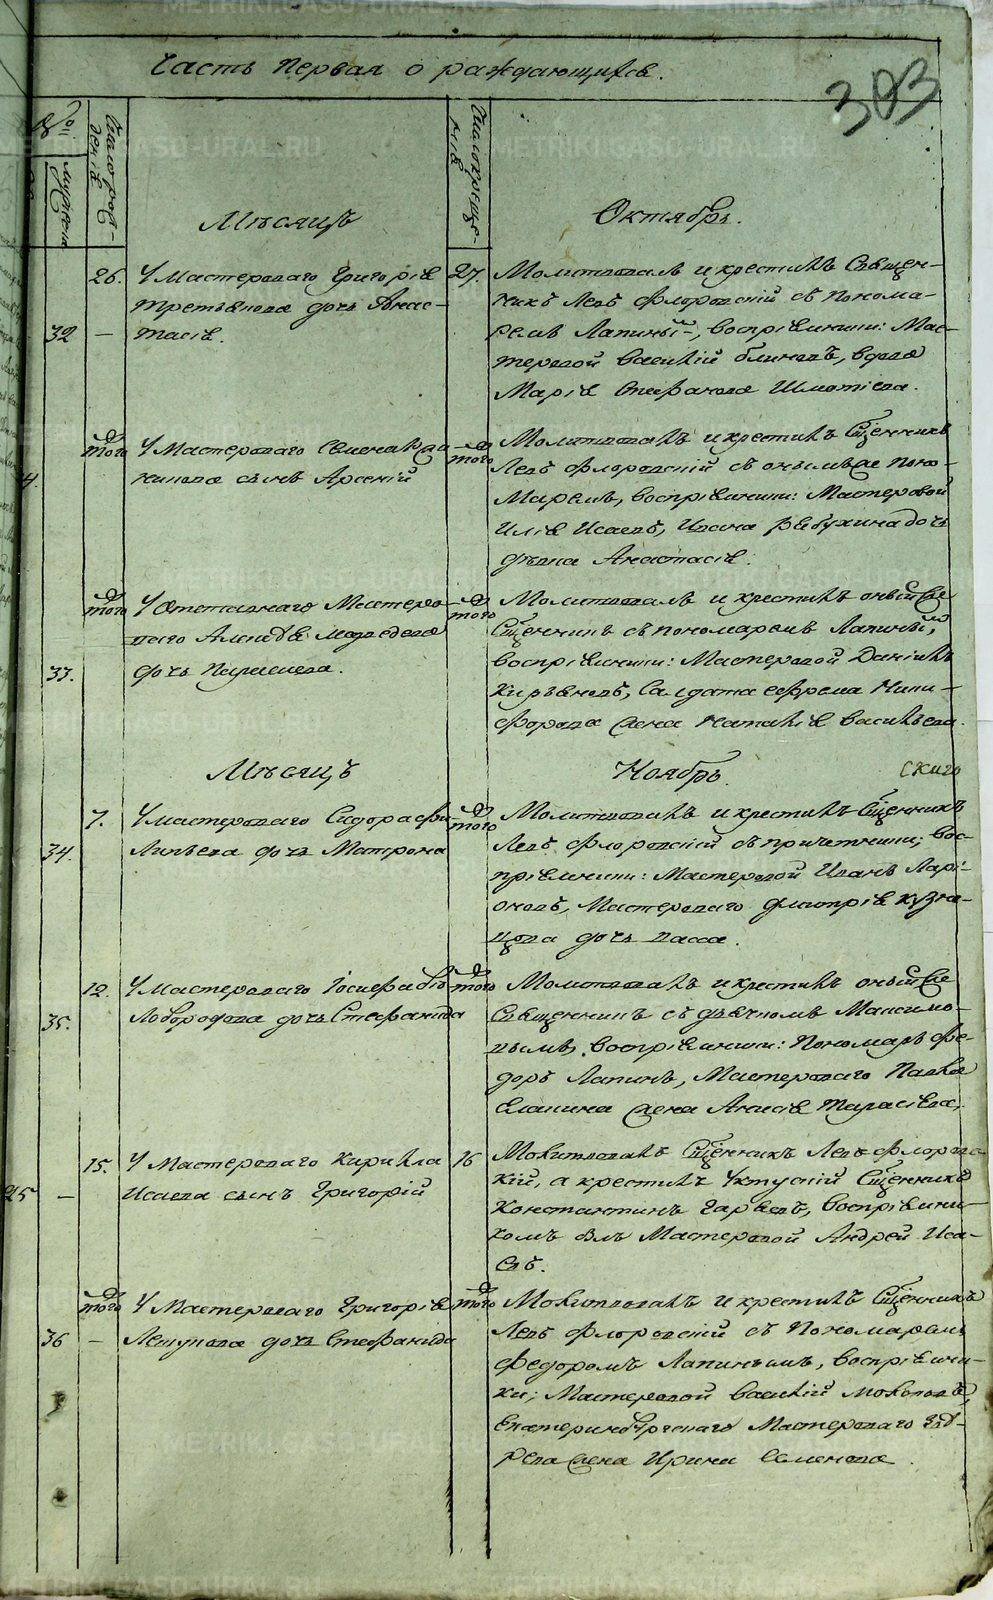 Часть Первая о раждающихся.
303
№
женска
Число рож-
денія
Число креще-
нія
Мѣсяцъ
Октябрь.
26. У Мастероваго Григорія
Третьякова дочь Анас-
32 — тасія.
27. Молитвовалъ и крестилъ Священ-
никъ Левъ Флоровскій съ понома-
ремъ Лапинымъ, воспріемники: Мас-
теровой Василій Блиновъ, вдова
Марія Стефанова
того У Мастероваго Семена
сынъ Арсеній
того Молитвовалъ и крестилъ Сщенникъ
Левъ Флоровскій съ онымъ же поно-
маремъ, воспріемники: Мастеровой
Илія Исаевъ, Ивана Рябухина дочь
дѣвка Анастасія.
того У Отставнаго Мастеро-
ваго Медведева
33. дочь
того Молитвовалъ и крестилъ оный же
Сщенникъ съ пономаремъ Лапинымъ,
воспріемники: Мастеровой Даніилъ
Кирьяновъ, Салдата Ефрема Ники-
форова жена Наталія Васильева.
Мѣсяцъ
Ноябрь.
7. У мастероваго Сидора Фи-
34. липьева дочь Матрона
того Молитвовалъ и крестилъ Сщенникъ
Левъ Флоровскій съ причетники; вос-
пріемники: Мастеровой Иванъ Ларі-
оновъ, Мастероваго Димитрія Кузне-
цова дочь Васса.
12. У Мастероваго Іосифа Бѣло-
35. бородова дочь Стефанида
того Молитвовалъ и крестилъ оный же
Священникъ съ дьячкомъ Максимо-
вымъ, воспріемники: Пономарь Фе-
доръ Лапинъ, Мастероваго Павла
Еланина жена Анисія Тарасіева.
15. У Мастероваго Кирилла
25 — Исаева сынъ Григорій
16 Молитвовалъ Сщенникъ Левъ Флоровс-
кій, а крестилъ Уктускій Сщенникъ
Константинъ Гаряевъ, воспріемни-
комъ былъ Мастеровой Андрей Иса-
евъ.
того У Мастероваго Григорія
36 — Лепунова дочь Стефанида
того Молитвовалъ и крестилъ Сщенникъ
Левъ Флоровскій съ Пономаремъ
Федоромъ Лапинымъ, воспріемни-
ки; Мастеровой Василій Моколовъ,
Екатеринбургскаго Мастероваго
жена Ирина Семенова.